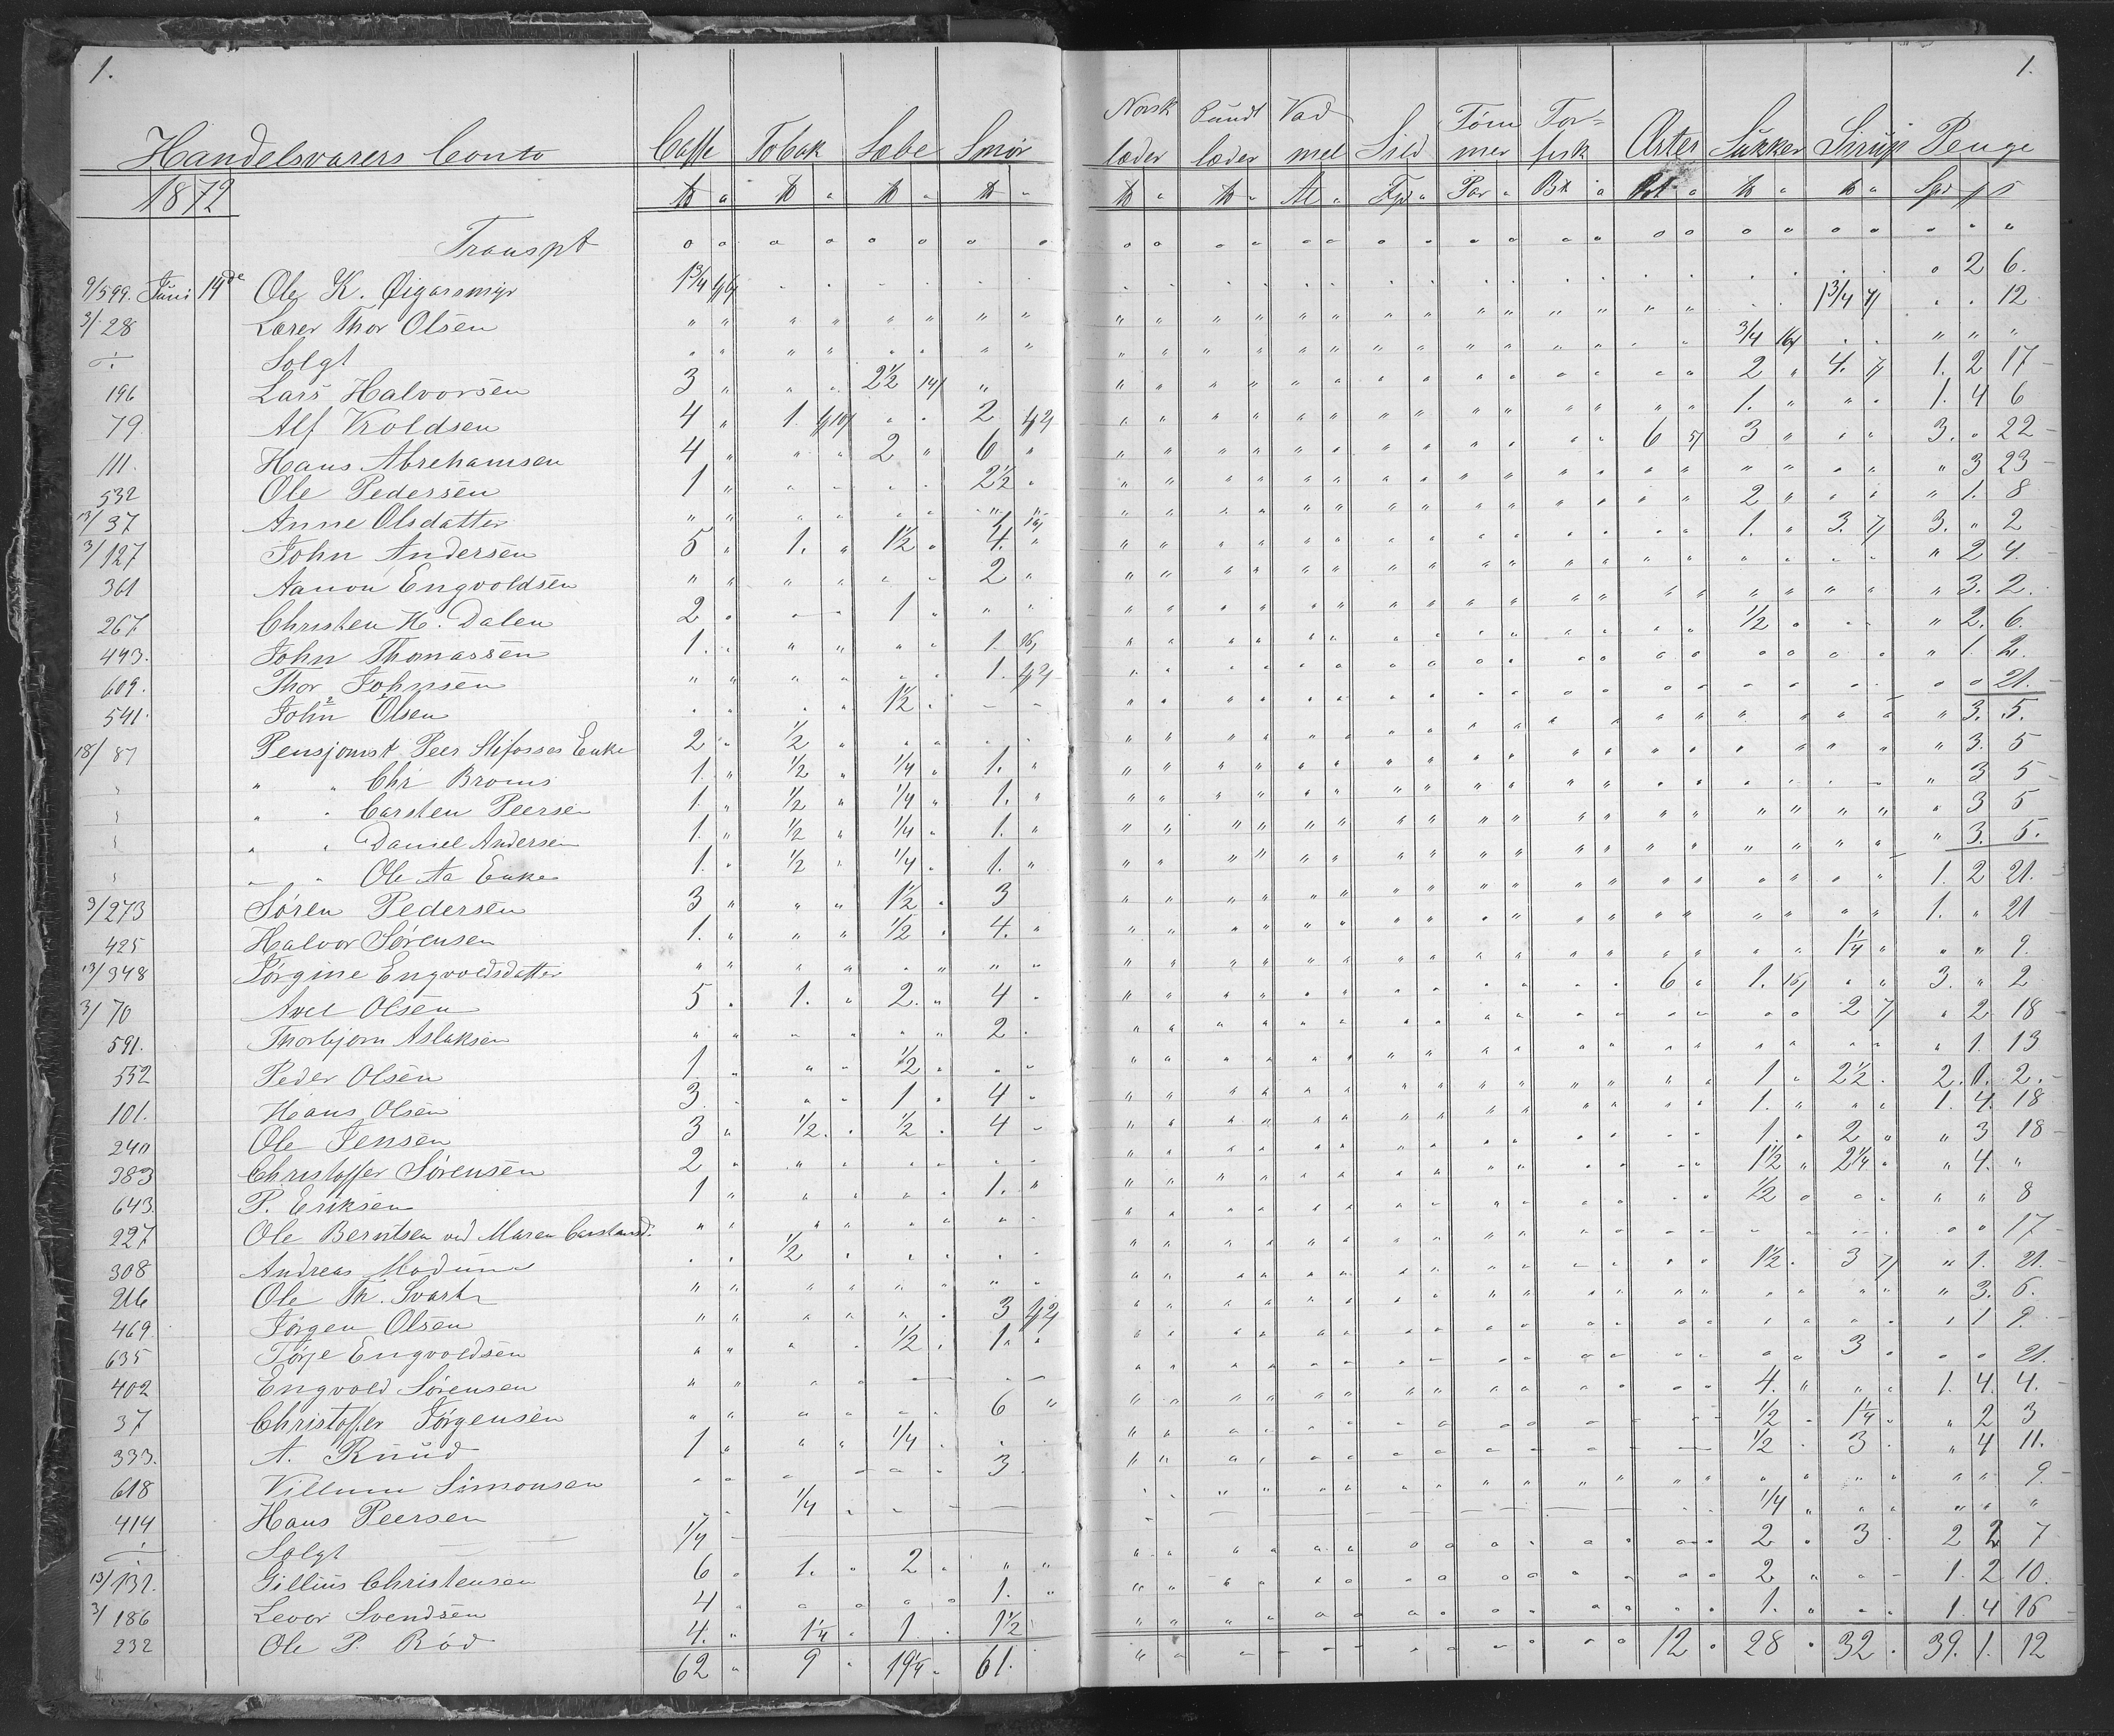 1. 1.
Handelsvarers Conto Caffe Tobak Sæbe Smör Norsk læder Pundt læder Vad mel Sild Töm mer Tor= fisk Ærter Sukker Sirup Penge
1872 ℔ " ℔ " ℔ " ℔ " ℔ " ℔ " Al " " " " Sps
Transpt
9/599. Juni 14de Ole K. Øigarsmyr 1 3/4 2 6.
3/28 Lærer Thor Olsen 1 3/4 12
Solgt 3/4
196 Lars Halvorsen 3 2 1/2 2 4. 1. 2 17
79 Alf Kroldsen 4 1. 2 1. 1. 4 6
111. Hans Abrehamsen 4 2 6 6 3 3. " 22
532 Ole Pedersen 1 2 1/2 " 3 23
13/37 Anne Olsdatter 1 2 " 1. 8
3/127 John Andersen 5 1. 1 1/2 4. 1. 3. 3. " 2
361 Aanon Engvoldsen 2 " 2 4
267 Christen H. Dalen 2 1 " 3. 2.
493. John Thomassen 1. 1. 1/2 " 2. 6.
609. Thor Johnsen 1. " 1. 2.
541. John Olsen 1 1/2 " " 21.
18/87 Pensjonist Peer Slifosses Enke 2 1/2 " 3. 5.
" " Chr Broms 1. 1/2 1/4 1. " 3. 5
" " Carsten Peersen 1. 1/2 1/4 1. " 3 5
" " Daniel Andersen 1. 1/2 1/4 1. " 3 5
" " Ole Aa Enke 1. 1/2 1/4 1. " 3. 5.
3/273 Sören Pedersen 3 1 1/2 3 1. 2 21.
425 Halvor Sörensen 1. 1/2 4. 1. " 21
13/348 Jörgine Engvoldsdatter 1 1/4 " " 9.
3/70 Avel Olsen 5 1. 2. 4 6 1. 3. " 2
591. Thorbjörn Aslaksen 2. 2 " 2 18
552 Peder Olsen 1 1/2 " 1. 13
101. Hans Olsen 3. 1 4 1 2 1/2 2. 0. 2.
240 Ole Jensen 3 1/2 1/2 4 1. 1. 4. 18
383 Christoffer Sörensen 2 1. 2 " 3 18
643. P. Eriksen 1 1. 1 1/2 2 1/4 " 4. "
227 Ole Berntsen ved Maren Carstensd. 1/2 " " 8
308 Andreas Modum 1/2 " " 17
216 Ole Th. Svart 1 1/2 3 " 1. 21.
469. Jörgen Olsen 3 " 3. 6.
635 Törje Engvoldsen 1/2 1 " 1 9.
402 Engvold Sörensen 3 " " 21.
37 Christoffer Jörgensen 6 4. 1. 4. 4.
333. A. Ruud 1 1/4 1/2 1 1/4 " 2 3
618 Villum Simonsen 3 1/2 3 " 4 11.
414 Hans Peersen 1/4 " " 9.
Solgt 1/4 1/4
13/132. Gillius Christensen 6 1. 2 2 3 2 2 7
3/186 Levor Svendsen 4 1. 2 1. 2 10.
232 Ole P. Röd 4. 1 1/4 1 1 1/2 1. 1. 4 16
62 9 19 1/4 61. 12 28 32 39. 1. 12